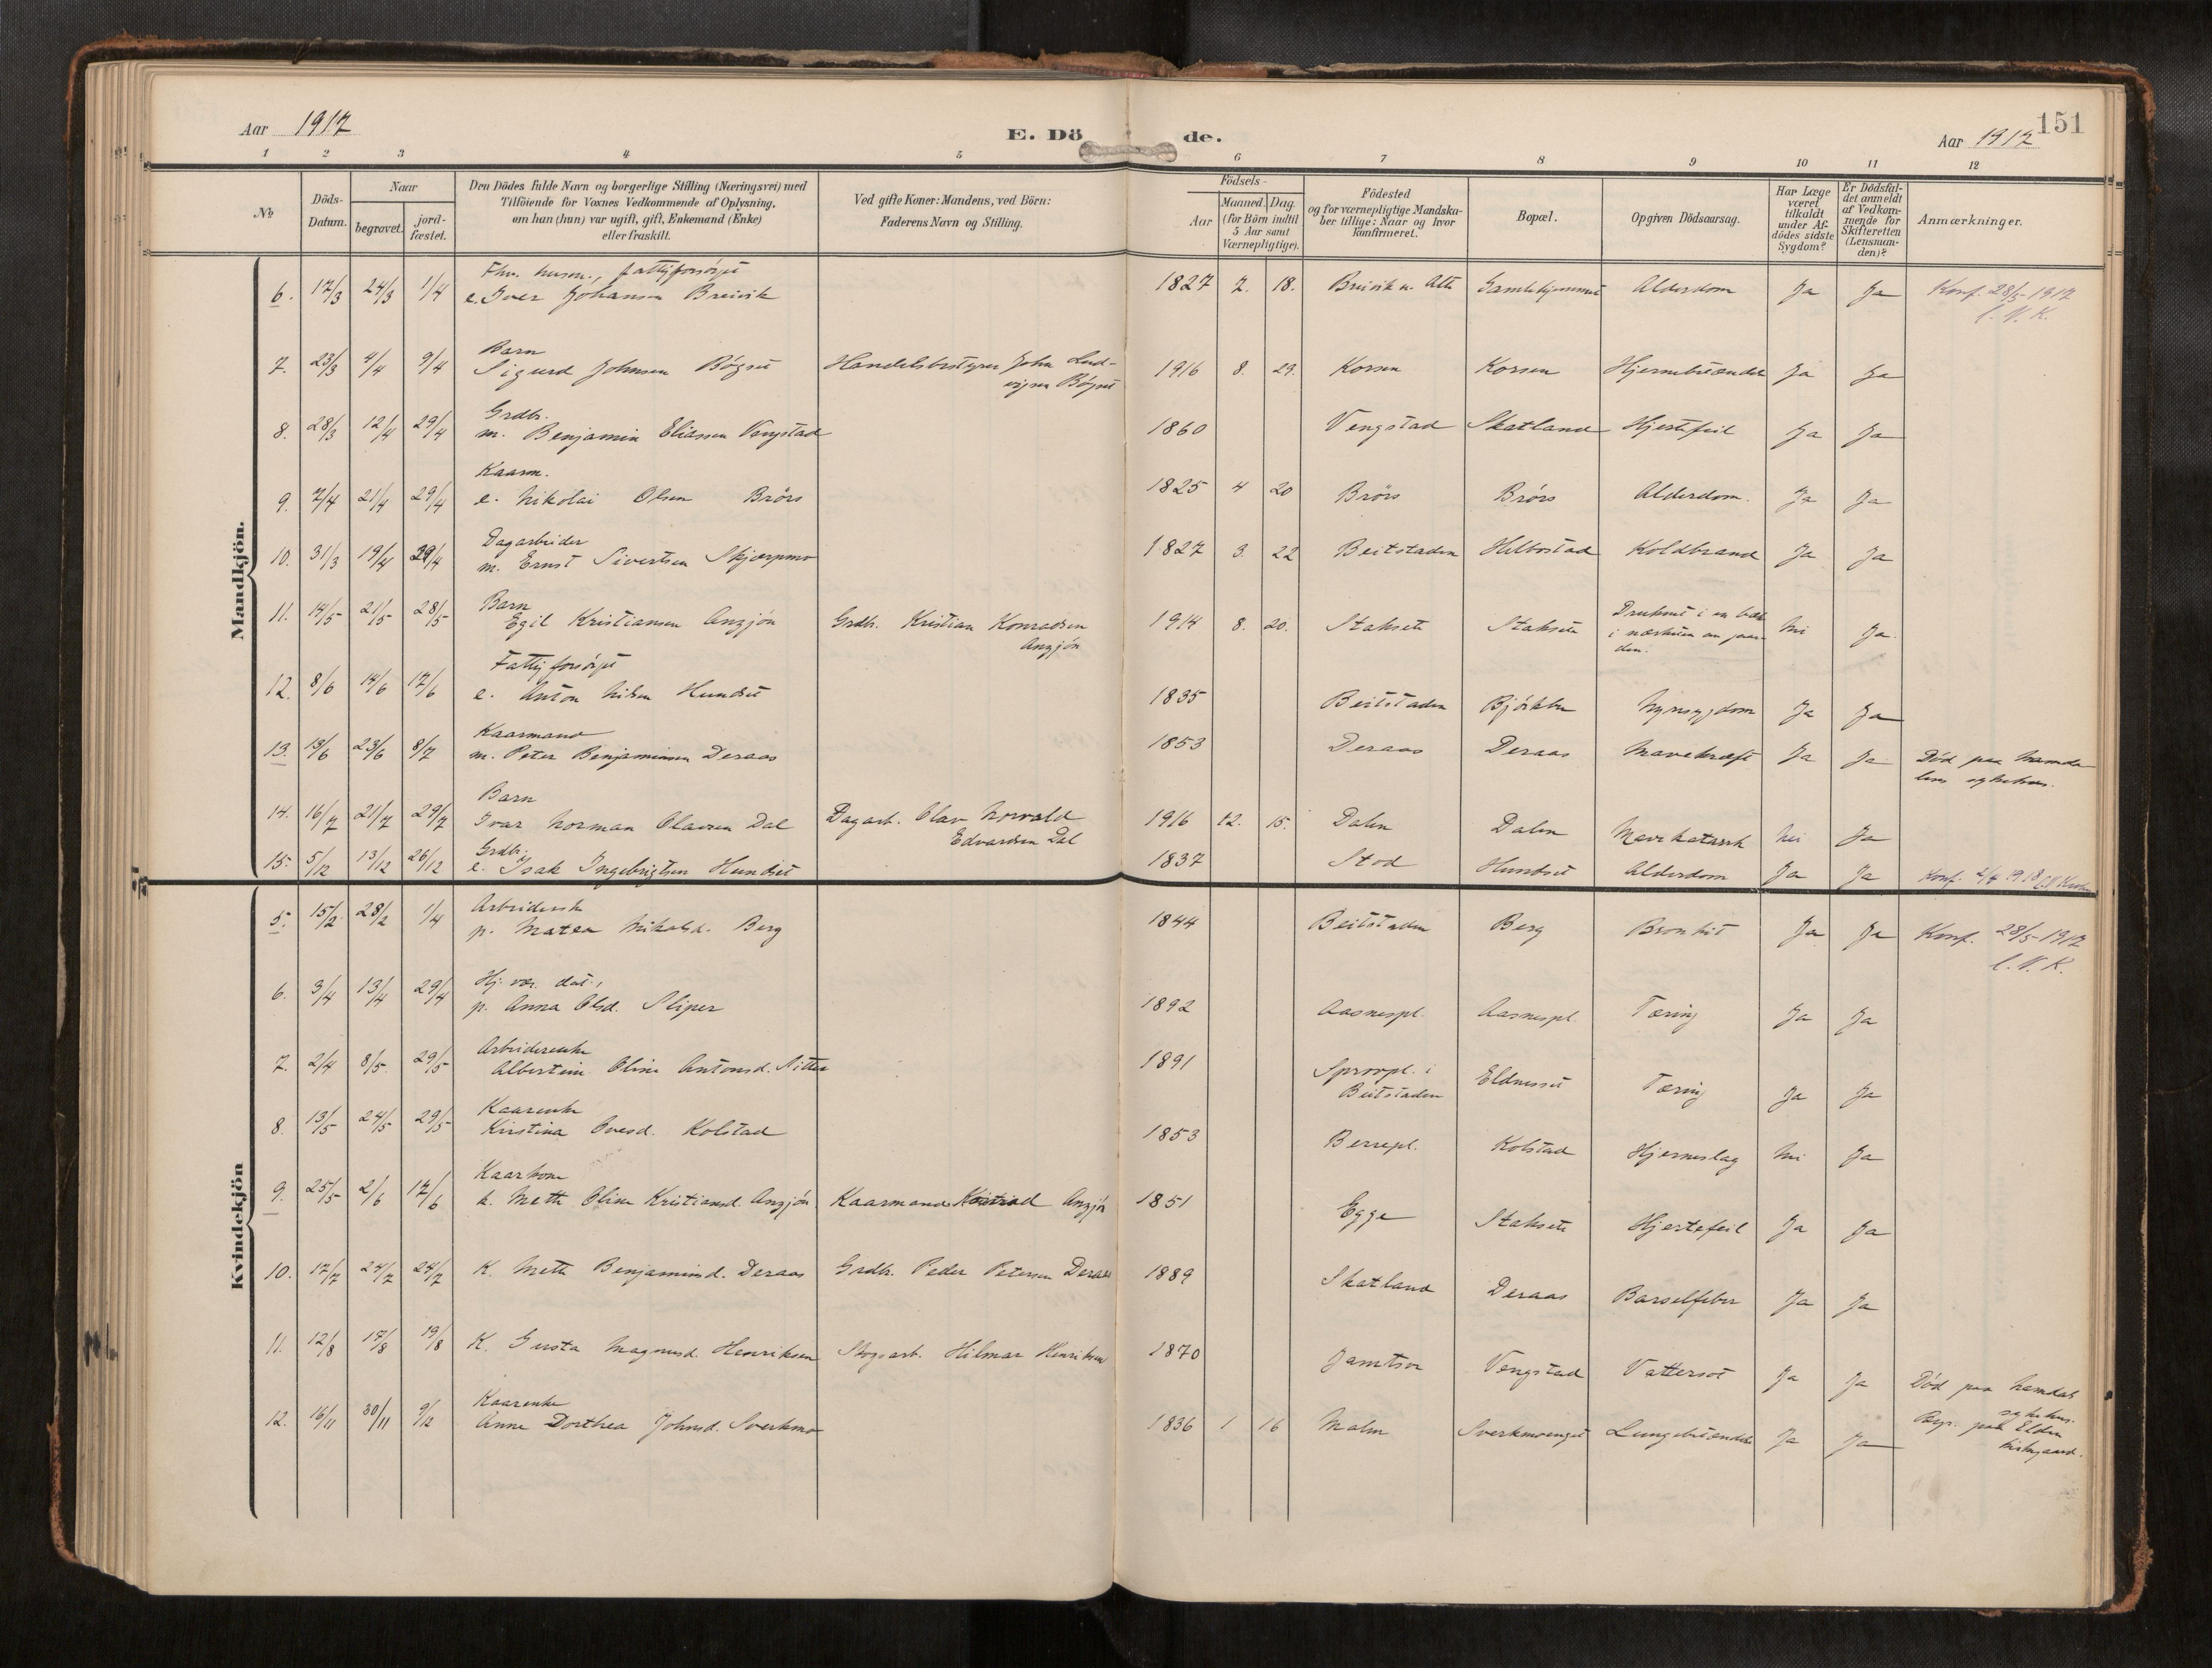 Aar 1917
E. Dö de.
Aar 1917
151
1 2 3 4 5 6 7 8 9 10 11 12
No
Döds-Datum.
Naar
begravet.
jord-fæstet.
Den Dödes fulde Navn og borgerlige Stilling (Næringsvei) med
Tilföiende for Voxnes Vedkommende af Oplysning,
om han (hun) var ugift, gift, Enkemand (Enke)
eller fraskilt.
Ved gifte Koner: Mandens, ved Börn:
Faderens Navn og Stilling.
Födsels-
Aar
Maaned. Dag.
(for Börn indtil
5 Aar samt
Værnepligtige).
Födested
og for værnepligtige Mandska-
ber tillige: Naar og hvor
konfirmeret.
Bopæl.
Opgiven Dödsaarsag.
Har Læge
været
tilkaldt
under Af-
dödes sidste
Sygdom?
Er Dödsfal-
det anmeldt
af Vedkom-
mende for
Skifteretten
(Lensman-
den)?
Anmærkninger.
Mandkjön.
Fhv. husm., fattigforsörget
6. 17/3 24/3 1/4 e. Iver Johansen Breivik 1827 7. 18. Breivik u. Gamlehjemmet Alderdom Ja Ja Konf. 28/5-1917
C. N. K.
Barn
7. 23/3 4/4 9/4 Sigurd Johnsen Bögset Handelsbestyrer John Lud-
vigsen Bögset 1916 8. 29. Korsen Korsen Hjernebetændelse Ja Ja
Grdbr.
8. 28/3 12/4 29/4 m. Benjamin Eliassen Vengstad 1860 Vengstad Skatland Hjertefeil Ja Ja
Kaarm.
9. 7/4 21/4 29/4 e. Nikolai Olsen Brörs 1825 4 20 Brörs Brörs Alderdom. Ja Ja
Dagarbeider
10. 31/3 19/4 29/4 m. Ernst Sivertsen Skjerpmo 1827 3. 22 Beitstaden Helbostad Koldbrand Ja Ja
Barn
11. 14/5 21/5 28/5 Egil Kristiansen Anzjön Grdbr. Kristian Konradsen
Anzjön 1914 8. 20. Staksete Staksete Druknet i en bæk
i nærheten av gaar-
den. Nei Ja.
Fattigforsörget
12. 8/6 14/6 17/6 e. Anton Nilsen Hundset 1835 Beitstaden Björkbu Nyresygdom Ja Ja
Kaarmand
13. 13/6 23/6 8/7 m. Peter Benjaminsen Deraas 1853 Deraas Deraas Mavekræft Ja Ja Död paa Namda-
lens sykehus.
Barn
14. 16/7 21/7 29/7 Ivar Norman Olavsen Dal Dagarb. Olav Norvald
Edvardsen Dal 1916 12. 15. Dalen Dalen Mavekatarrh Nei Ja
Grdbr.
15. 5/12 13/12 26/12 e. Isak Ingebrigtsen Hundset 1837 Stod Hundset Alderdom Ja Ja Konf. 2/4 1918
Kvindekjön
Arbeiderske
5. 15/2 28/2 1/4 p. Matea Nikolsd. Berg 1844 Beitstaden Berg Bronkit Ja Ja Konf. 28/5-1917
C. N. K.
Hj. vær. dat.,
6. 3/4 13/4 29/4 p. Anna Olsd. Sliper 1892 Aasnespl. Aasnespl. Tæring Ja Ja
Arbeiderenke
7. 2/4 8/5. 29/5 Albertine Oline Antonsd. 1891 Sprovpl. i
Beitstaden Eldnesset Tæring Ja Ja
Kaarenke
8. 13/5 24/5 29/5 Kirstina Ovesd. Kolstad 1853 Berrepl. Kolstad Hjerneslag Nei Ja
Kaarkone
9. 25/5 2/6 17/6 k. Meth Oline Kristiansd. Anzjön Kaarmand Konrad Anzjön 1851 Egge Staksete Hjertefeil Ja Ja
10. 17/7 24/7 24/7 K. Meth Benjamind. Deraas Grdbr. Peder Petersen Deraas 1889 Skatland Deraas Barselfeber Ja Ja
11. 12/8 17/8 19/8 K. Gusta Magnusd. Henriksen Skogsarb. Hilmar Henriksen 1870 Jamtsve Vengstad Vattersot Ja Ja Död paa Namdals
sykehus.
Kaarenke
12. 16/11 30/11 9/12 Anne Dorthea Johnsd. Sverkmo 1836 1 16 Malm Sverkmoenget Lungebetændelse Ja Ja Begr. paa Elden
kirkegaard.